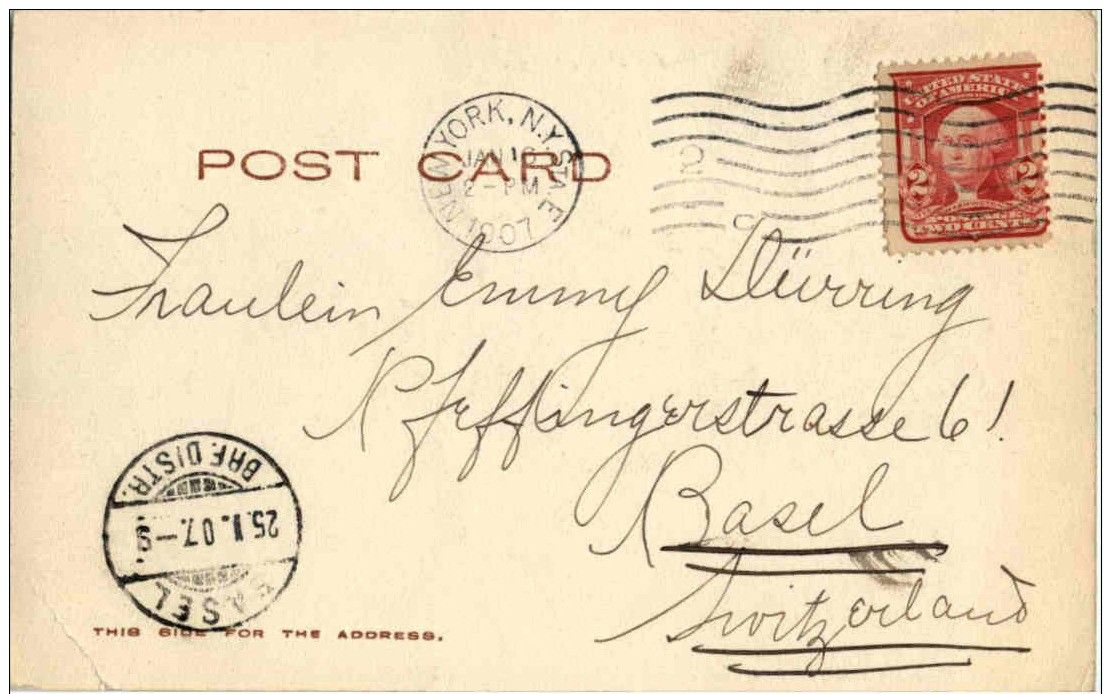 POST CARD
NEW YORK, N.Y. STA. E
JAN 16
2-PM
1907
2
UNITED STATES
OF AMERICA
2 2
POSTAGE
TWO CENTS
Fräulein Emmy Dürring
Pfeffingerstrasse 61.
Basel
Switzerland
BRF. DISTR.
25.I.07.-9.
BASEL
THIS SIDE FOR THE ADDRESS.